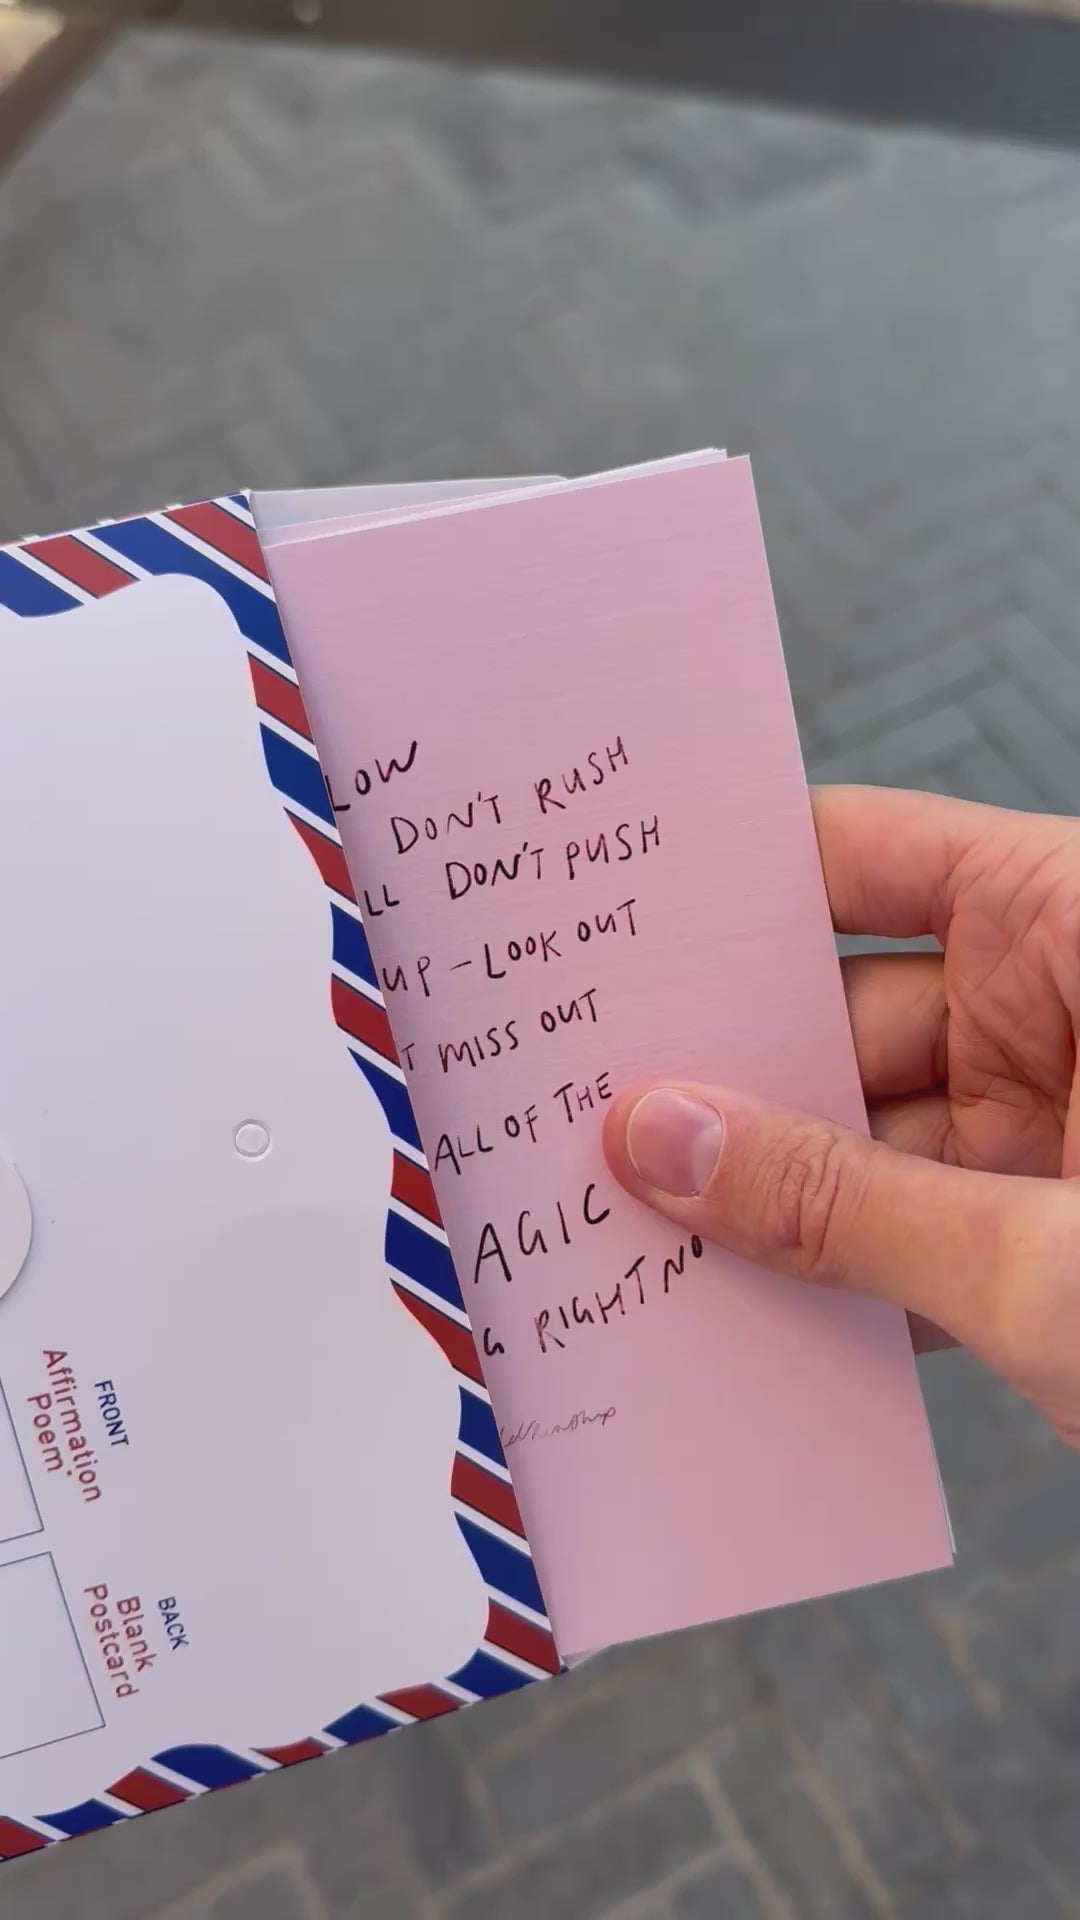 LOW
DON'T RUSH
LL DON'T PUSH
UP - LOOK OUT
T MISS OUT
ALL OF THE
AGIC
G RIGHT NO
FRONT
Affirmation
Poem
BACK
Blank
Postcard